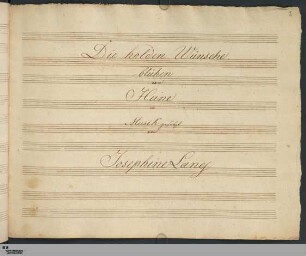 Die holden Wünsche
blühen
von
Heine
in
Musik gesetzt
von
Josephine Lang